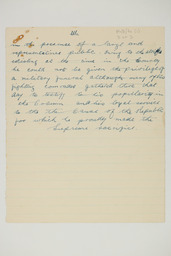 in the presence of a large and
representative public. Owing to the state
existing at the time in the County
he could not be given the privilege of
a military funeral although many of his
fighting comrades gathered there that
day to testify to his popularity in
the Column and his loyal service
to the the cause of the Republic
for which he proudly made the
Supreme Sacrifice